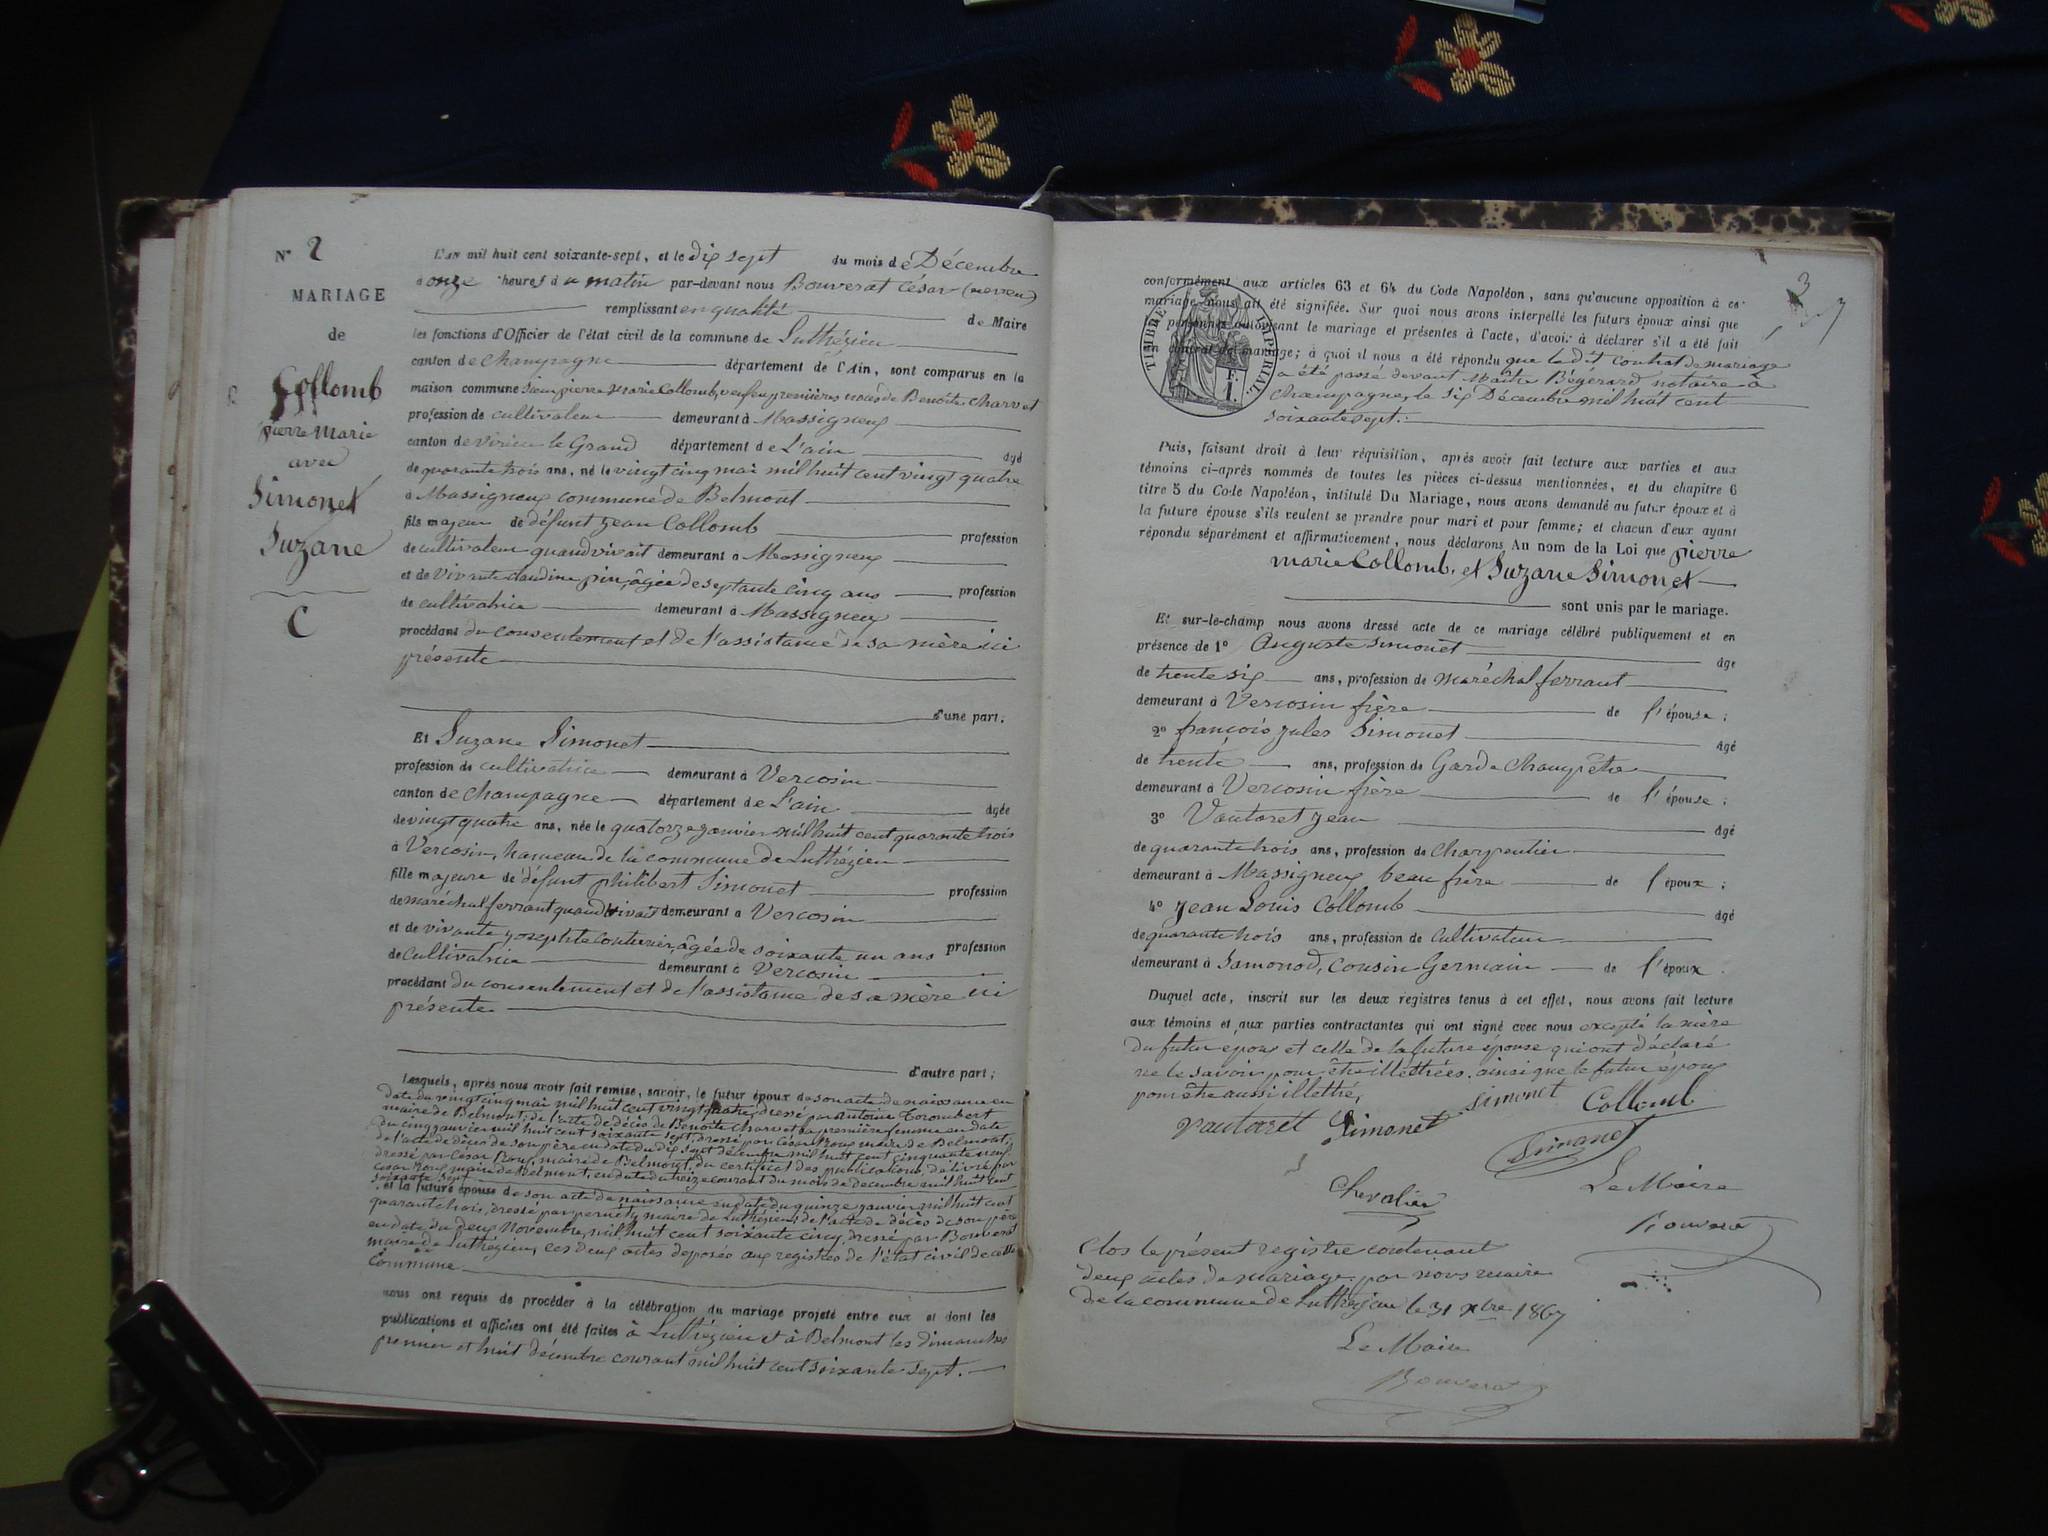 N° 2
MARIAGE
de
Collomb
pierre Marie
avec
Simonet
Suzane
C
L'AN mil huit cent soixante-sept, et le dix sept du mois de Décembre
à onze heures du matin par-devant nous Bouverat César (neveu)
remplissant en qualité de Maire
les fonctions d'Officier de l'état civil de la commune de Luthézieu
canton de Champagne département de l'Ain, sont comparus en la
maison commune Sieur pierre Marie Collomb, veuf en premières noces de Benoite Charvet
profession de cultivateur demeurant à Massigneux
canton de virieu le Grand département de L'ain âgé
de quarante trois ans, né le vingt cinq mai mil huit cent vingt quatre
à Massigneux commune de Belmont
fils majeur de défunt jean Collomb profession
de cultivateur quand vivait demeurant à Massigneux
et de vivante claudine pin, âgée de septante cinq ans profession
de cultivatrice demeurant à Massigneux
procédant du consentement et de l'assistance de sa mère ici
présente
d'une part.
Et Suzane Simonet
profession de cultivatrice demeurant à Vercosin
canton de Champagne département de L'ain âgée
de vingt quatre ans, née le quatorze janvier mil huit cent quarante trois
à Vercosin, hameau de la commune de Luthézieu
fille majeure de défunt philibert Simonet profession
de maréchal ferrant quand vivait demeurant à Vercosin
et de vivante josephte Couturier, âgée de soixante un ans profession
de Cultivatrice demeurant à Vercosin
procédant du consentement et de l'assistance de sa mère ici
présente
d'autre part;
Lesquels, après nous avoir fait remise, savoir, le futur époux de son acte de naissance en
date du vingt cinq mai mil huit cent vingt quatre, dressé par Antoine Trombert
maire de Belmont, de l'acte de décès de Benoite Charvet sa première femme en date
du cinq janvier mil huit cent soixante sept, dressé par César Roux maire de Belmont,
de l'acte de décès de son père en date du dix sept décembre mil huit cent cinquante neuf
dressé par César Roux, maire de Belmont, du certificat des publications, délivré par
César Roux maire de Belmont, en date du treize courant du mois de décembre mil huit cent
soixante sept
et la future épouse de son acte de naissance en date du quinze janvier mil huit cent
quarante trois, dressé par maire de Luthézieu, de l'acte de décès de son père
en date du deux Novembre, mil huit cent soixante cinq, dressé par Bouverat
maire de Luthézieu, ces deux actes déposés aux registres de l'état civil de cette
Commune
nous ont requis de procéder à la célébration du mariage projeté entre eux et dont les
publications et affiches ont été faites à Luthézieu et à Belmont les dimanches
premier et huit décembre courant mil huit cent soixante sept.
3
TIMBRE IMPÉRIAL
F. 1
conformément aux articles 63 et 64 du Code Napoléon, sans qu'aucune opposition à ce
mariage nous ait été signifiée. Sur quoi nous avons interpellé les futurs époux ainsi que
personnes autorisant le mariage et présentes à l'acte, d'avoir à déclarer s'il a été fait
contrat de mariage; à quoi il nous a été répondu que le dit contrat de mariage
a été passé devant Maître Bégérard notaire à
Champagne, le six Décembre mil huit cent
soixante sept.
Puis, faisant droit à leur réquisition, après avoir fait lecture aux parties et aux
témoins ci-après nommés de toutes les pièces ci-dessus mentionnées, et du chapitre 6
titre 5 du Code Napoléon, intitulé Du Mariage, nous avons demandé au futur époux et à
la future épouse s'ils veulent se prendre pour mari et pour femme; et chacun d'eux ayant
répondu séparément et affirmativement, nous déclarons Au nom de la Loi que pierre
marie Collomb. et Suzane Simonet
sont unis par le mariage.
Et sur-le-champ nous avons dressé acte de ce mariage célébré publiquement et en
présence de 1° Auguste Simonet âgé
de trente six ans, profession de maréchal ferrant
demeurant à Vercosin frère de l'épouse;
2° françois jules Simonet âgé
de trente ans, profession de Garde Champêtre
demeurant à Vercosin frère de l'épouse;
3° Vautaret jean âgé
de quarante trois ans, profession de Charpentier
demeurant à Massigneux beau frère de l'époux;
4° jean Louis Collomb âgé
de quarante trois ans, profession de Cultivateur
demeurant à Samonod, Cousin Germain de l'époux.
Duquel acte, inscrit sur les deux registres tenus à cet effet, nous avons fait lecture
aux témoins et aux parties contractantes qui ont signé avec nous excepté la mère
du futur époux et celle de la future épouse qui ont déclaré
ne le savoir pour être illettrées. ainsi que le futur époux
pour être aussi illettré,
Simonet Collomb
Vautaret Simonet
Simonet
Chevalier
Le Maire
Bouverat
Clos le présent registre contenant
deux actes de mariage par nous maire
de la commune de Luthézieu le 31 Xbre 1867
Le Maire
Bouverat